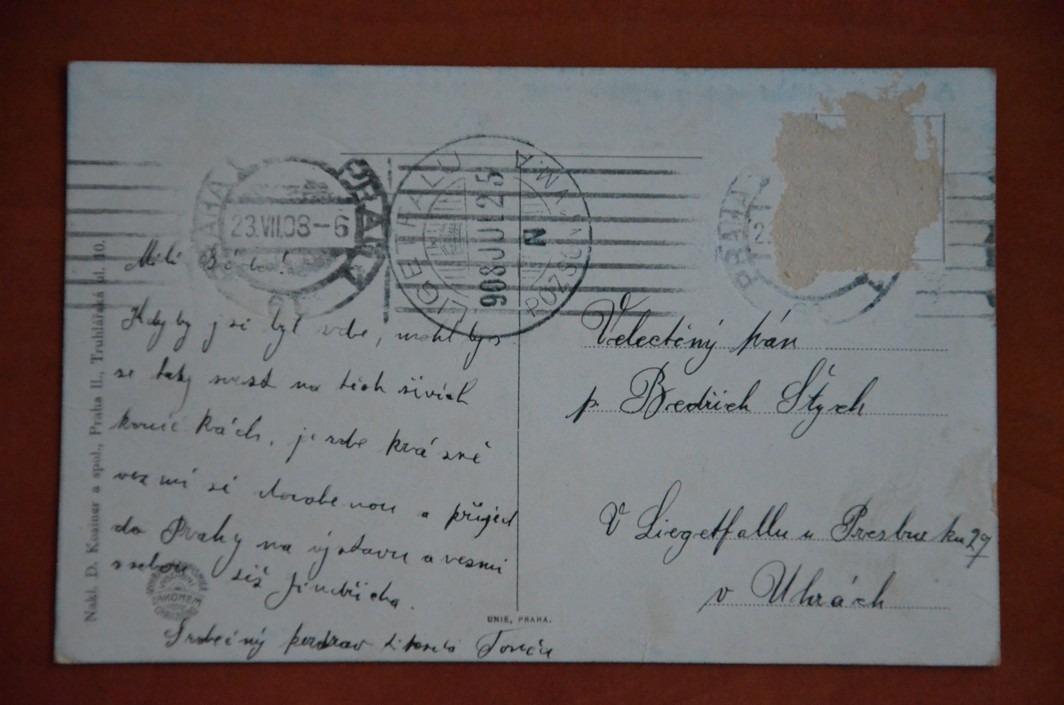 PRAHA
23.VII.08-6
PRAG
LIGETFALU
908 JUL 25
N
POZSONY
PRAHA
Milí
Kdyby jsi byl zde, mohl bys
se taky svest na těch živých
konič kách, je zde krásné
vezmi si dovolenou a přijed
do Prahy na výstavu a vezmi
ssebou též Jindřicha.
Srdečný pozdrav
Velectěný pán
p. Bedřich Štych
V Liegetfallu u Presburku 29
v Uhrách
UNIE, PRAHA.
Nakl. D. Kosiner a spol., Praha II., Truhlářská ul. 10.